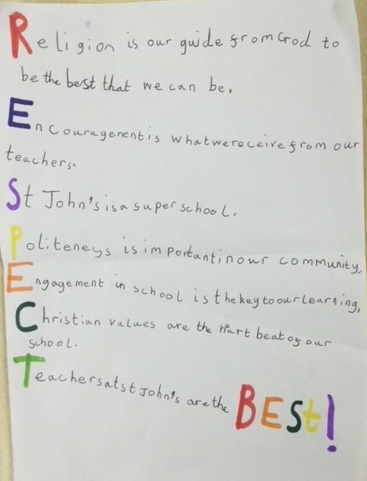 Religion is our guide from God to
be the best that we can be.
Encouragement is what we receive from our
teachers.
St John's is a super school.
Politeneys is important in our community,
Engagement in school is the key to our learning,
Christian values are the hart beat of our
school.
Teachers at st John's are the BEst!